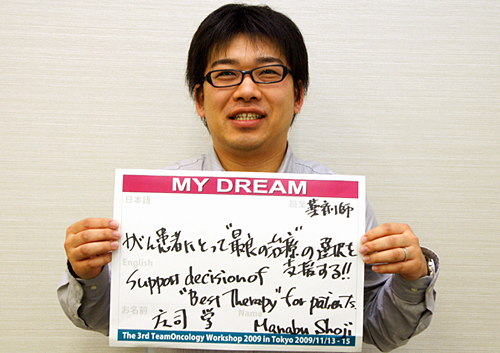 MY DREAM
日本語
職業 薬剤師
がん患者にとって"最良の治療"の選択を
支援する!!
English
Support decision of
"Best Therapy" for patients.
お名前
庄司 学
Name
Manabu Shoji
The 3rd TeamOncology Workshop 2009 in Tokyo 2009/11/13 - 15